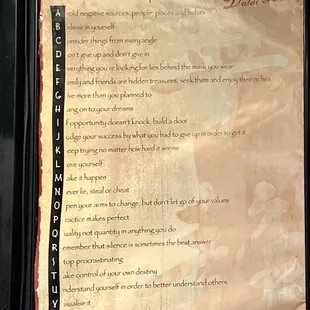 Dalai
A void negative sources, people, places and habits
B elieve in yourself
C onsider things from every angle
D on't give up and don't give in
E verything you're looking for lies behind the mask you wear
F amily and friends are hidden treasures, seek them and enjoy their riches
G ive more than you planned to
H ang on to your dreams
I f opportunity doesn't knock, build a door
J udge your success by what you had to give up in order to get it
K eep trying no matter how hard it seems
L ove yourself
M ake it happen
N ever lie, steal or cheat
O pen your arms to change, but don't let go of your values
P ractice makes perfect
Q uality not quantity in anything you do
R emember that silence is sometimes the best answer
S top procrastinating
T ake control of your own destiny
U nderstand yourself in order to better understand others
V isualise it